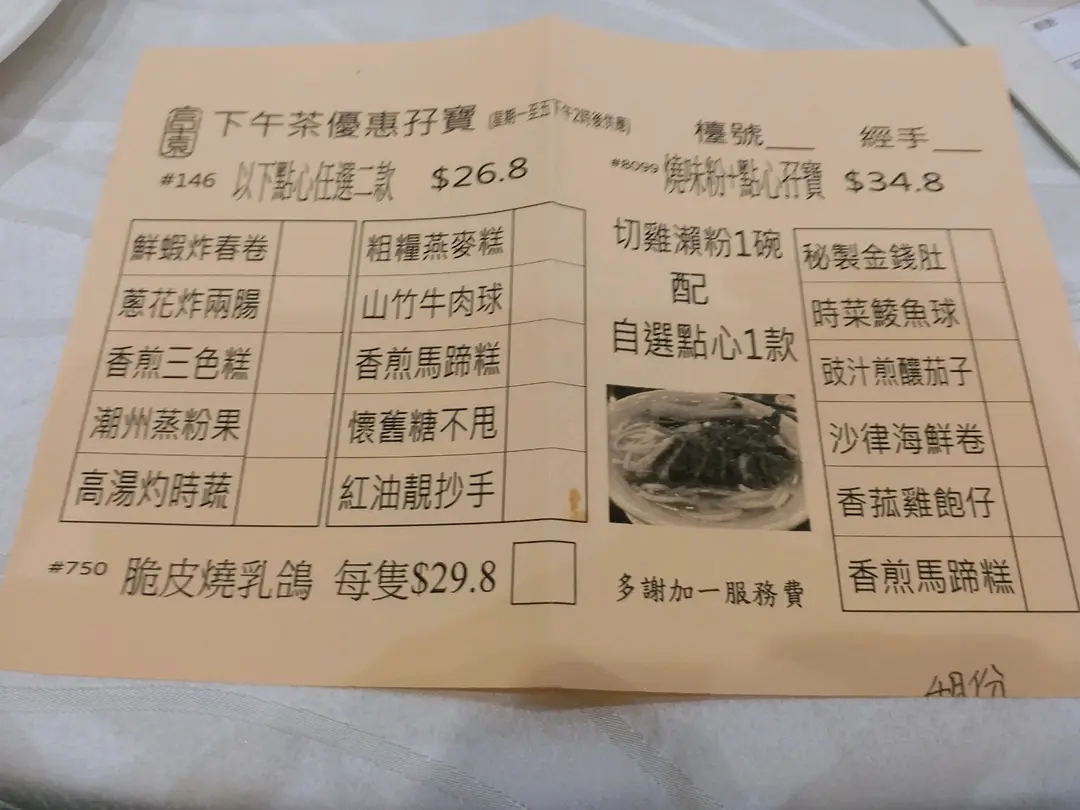 富園
下午茶優惠孖寶 (星期一至五下午2時後供應)
檯號___ 經手___
#146 以下點心任選二款 $26.8
鮮蝦炸春卷
蔥花炸兩腸
香煎三色糕
潮州蒸粉果
高湯灼時蔬
粗糧燕麥糕
山竹牛肉球
香煎馬蹄糕
懷舊糖不甩
紅油靚抄手
#750 脆皮燒乳鴿 每隻$29.8
#8099 燒味粉+點心孖寶 $34.8
切雞瀨粉1碗
配
自選點心1款
秘製金錢肚
時菜鯪魚球
豉汁煎釀茄子
沙律海鮮卷
香菰雞飽仔
香煎馬蹄糕
多謝加一服務費
4月份